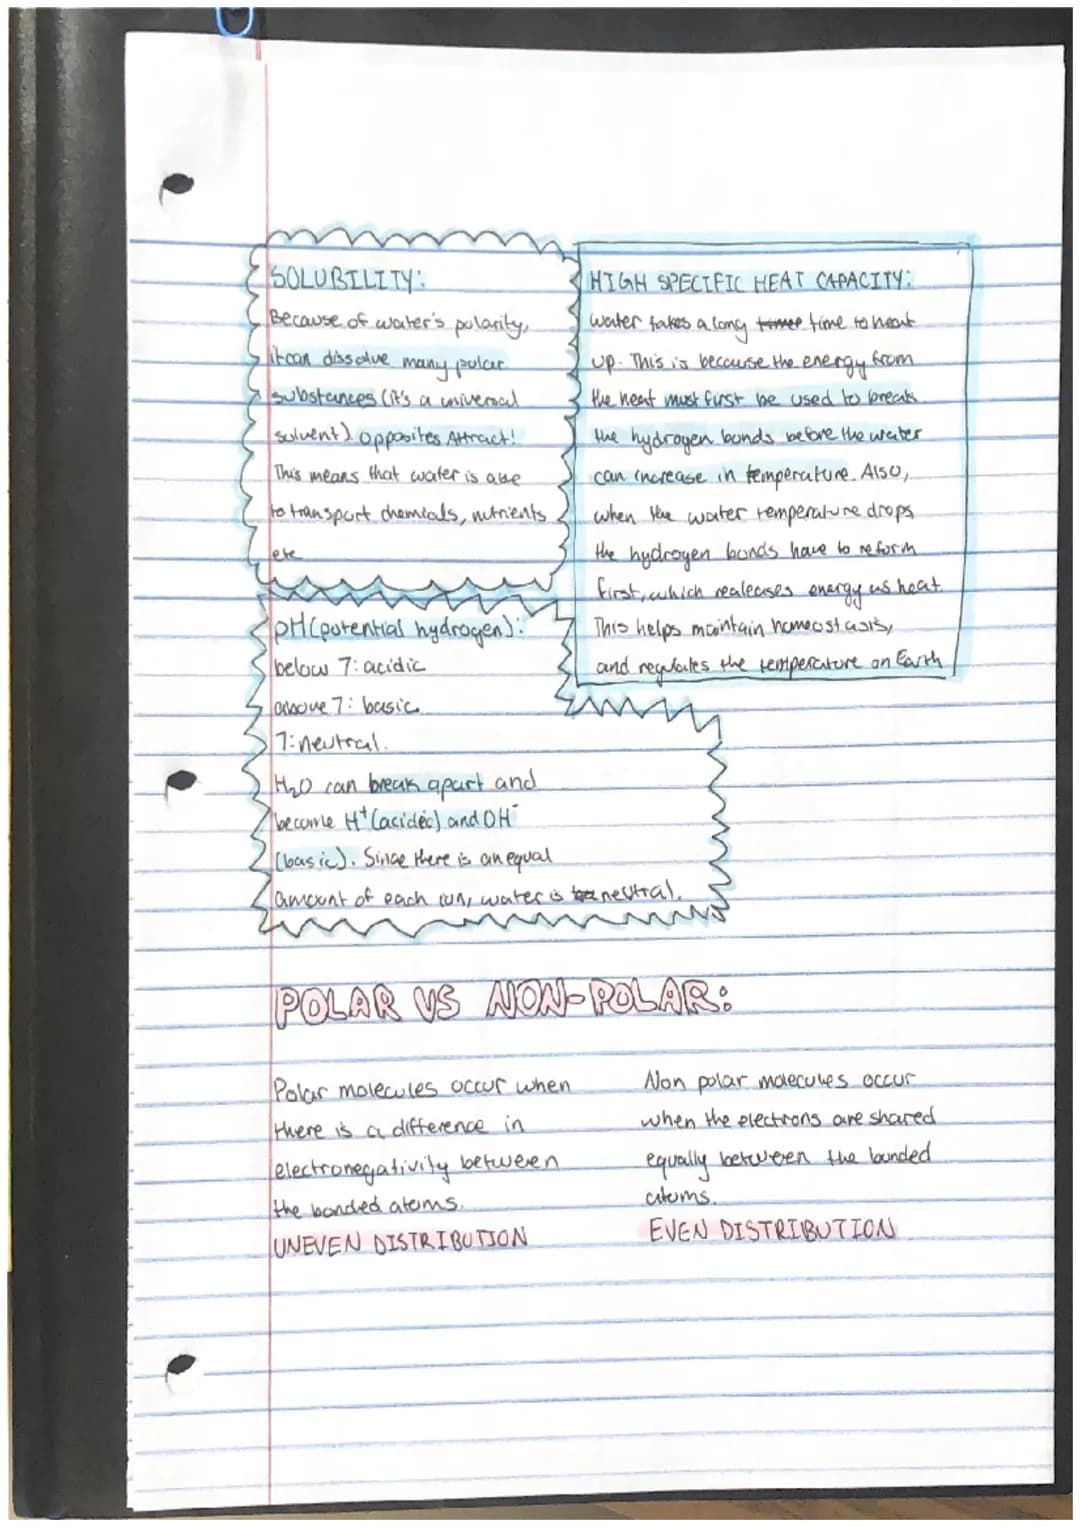 SOLUBILITY:
Because of water's polarity,
it can dissolve many polar
substances (it's a universal
solvent). Opposites Attract!
This means that water is able
to transport chemicals, nutrients
etc
HIGH SPECIFIC HEAT CAPACITY:
water takes a long time to heat
up. This is because the energy from
the heat must first be used to break
the hydrogen bonds before the water
can increase in temperature. Also,
when the water temperature drops,
the hydrogen bonds have to reform
first, which realeases energy as heat.
This helps maintain homeostasis,
and regulates the temperature on Earth
pH (potential hydrogen):
below 7: acidic
above 7: basic
7: neutral.
H₂O can break apart and
become H⁺ (acidic) and OH⁻
(basic). Since there is an equal
amount of each ion, water is neutral.
POLAR VS NON-POLAR:
Polar molecules occur when
there is a difference in
electronegativity between
the bonded atoms.
UNEVEN DISTRIBUTION
Non polar molecules occur
when the electrons are shared
equally between the bonded
atoms.
EVEN DISTRIBUTION